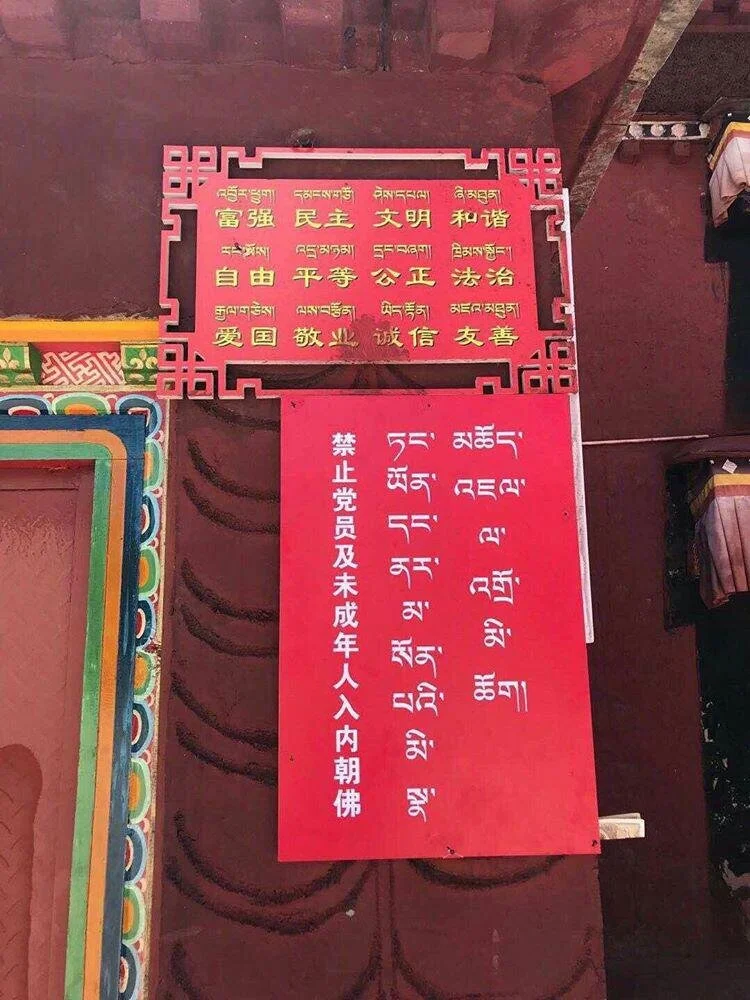 འབྱོར་ཕྱུག། དམངས་གཙོ། ཤེས་དཔལ། ཞི་མཐུན།
富强 民主 文明 和谐
རང་མོས། འདྲ་མཉམ། དྲང་བཞག། ཁྲིམས་སྐྱོང་།
自由 平等 公正 法治
རྒྱལ་གཅེས། ལས་བརྩོན། ཡིད་རྟོན། མཛའ་མཐུན།
爱国 敬业 诚信 友善
禁止党员及未成年人入内朝佛
ཏང་ཡོན་དང་ནར་མ་སོན་པའི་མི་སྣ་
མཆོད་འཇལ་ལ་འགྲོ་མི་ཆོག།